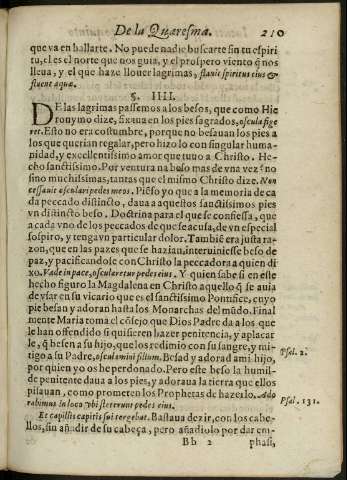 De la Quaresma. 210
que va en hallarte. No puede nadie buscarte sin tu espiri
tu, el es el norte que nos guia, y el prospero viento q̃ nos
lleua, y el que haze llouer lagrimas, flauit spiritus eius &
fluent aquæ.
§. IIII.
DE las lagrimas passemos a los besos, que como Hie
ronymo dize, fixaua en los pies sagrados, oscula fige
ret. Esto no era costumbre, porque no besauan los pies a
los que querian regalar, pero hizolo con singular huma-
nidad, y excellentissimo amor que tuuo a Christo. He-
cho sanctissimo. Por ventura no beso mas de vna vez? no
sino muchissimas, tantas que el mismo Christo dize. Non
cessauit osculari pedes meos. Piẽso yo que a la memoria de ca
da peccado distincto, daua a aquestos sanctissimos pies
vn distincto beso. Doctrina para el que se confiessa, que
a cada vno de los peccados de que se acusa, de vn especial
sospiro, y tenga vn particular dolor. Tambiẽ era justa ra-
zon, que en las pazes que se hazian, interuiniesse beso de
paz, y pacificandose con Christo la peccadora a quien di
xo. Vade in pace, oscularetur pedes eius. Y quien sabe si en este
hecho figuro la Magdalena en Christo aquello q̃ se auia
de vsar en su vicario que es el sanctissimo Pontifice, cuyo
pie besan y adoran hasta los Monarchas del mũdo. Final
mente Maria toma el cõsejo que Dios Padre da a los que
le han offendido si quisieren hazer penitencia, y aplacar
le, q̃ besen a su hijo, que los redimio con su sangre, y mi-
tigo a su Padre, osculamini filium. Besad y adorad a mi hijo,
por quien yo os he perdonado. Pero este beso la humil-
de penitente daua a los pies, y adoraua la tierra que ellos
pisauan, como prometen los Prophetas de hazerlo. Ado
rabimus in loco vbi steterunt pedes eius.
Et capillis capitis sui tergebat. Bastaua dezir, con los cabe-
llos, sin añadir de su cabeça, pero añadiolo por dar em-
Bb 2 phasi,
Psal. 2.
Psal. 131.